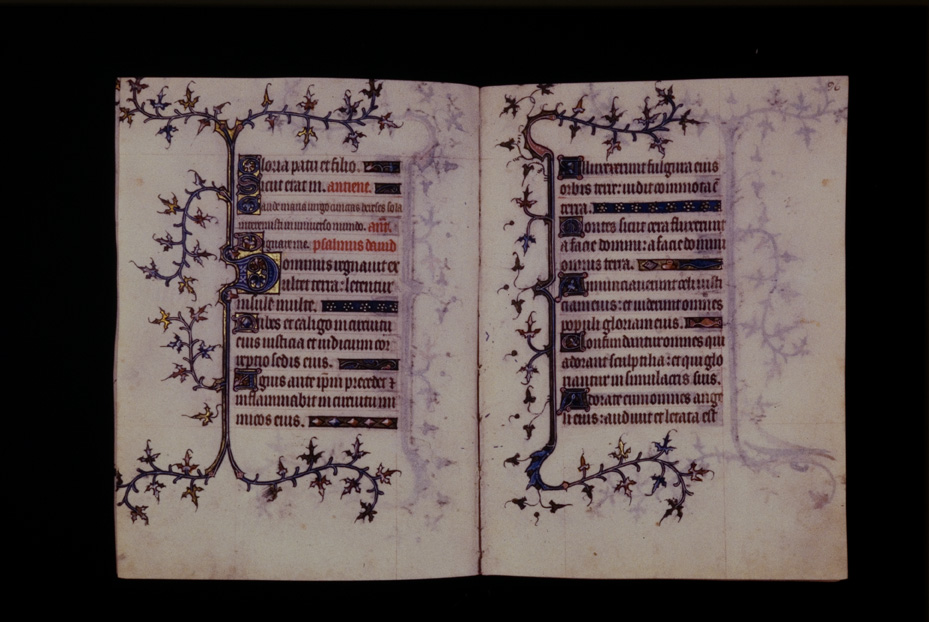 Gloria patri et filio.
Sicut erat in. antiene.
Gaude maria virgo cunctas hereses sola
interemisti in universo mundo. añt.
Dignare me. psalmus david
Dominus regnavit ex
ultet terra: letentur
insule multe.
Nubes et caligo in circuitu
eius iusticia et iudicium cor
reptio sedis eius.
Ignis ante ip̄m precedet ⁊
inflammabit in circuitu ini
micos eius.
Alluxerunt fulgura eius
orbis terre: vidit et commota ē
terra.
Montes sicut cera fluxerunt
a facie domini: a facie domini
omnis terra.
Annunciaverunt celi iusti
ciam eius: et viderunt omnes
populi gloriam eius.
Confundantur omnes qui
adorant sculptilia: et qui glo
riantur in simulacris suis.
Adorate eum omnes ange
li eius: audivit et letata est